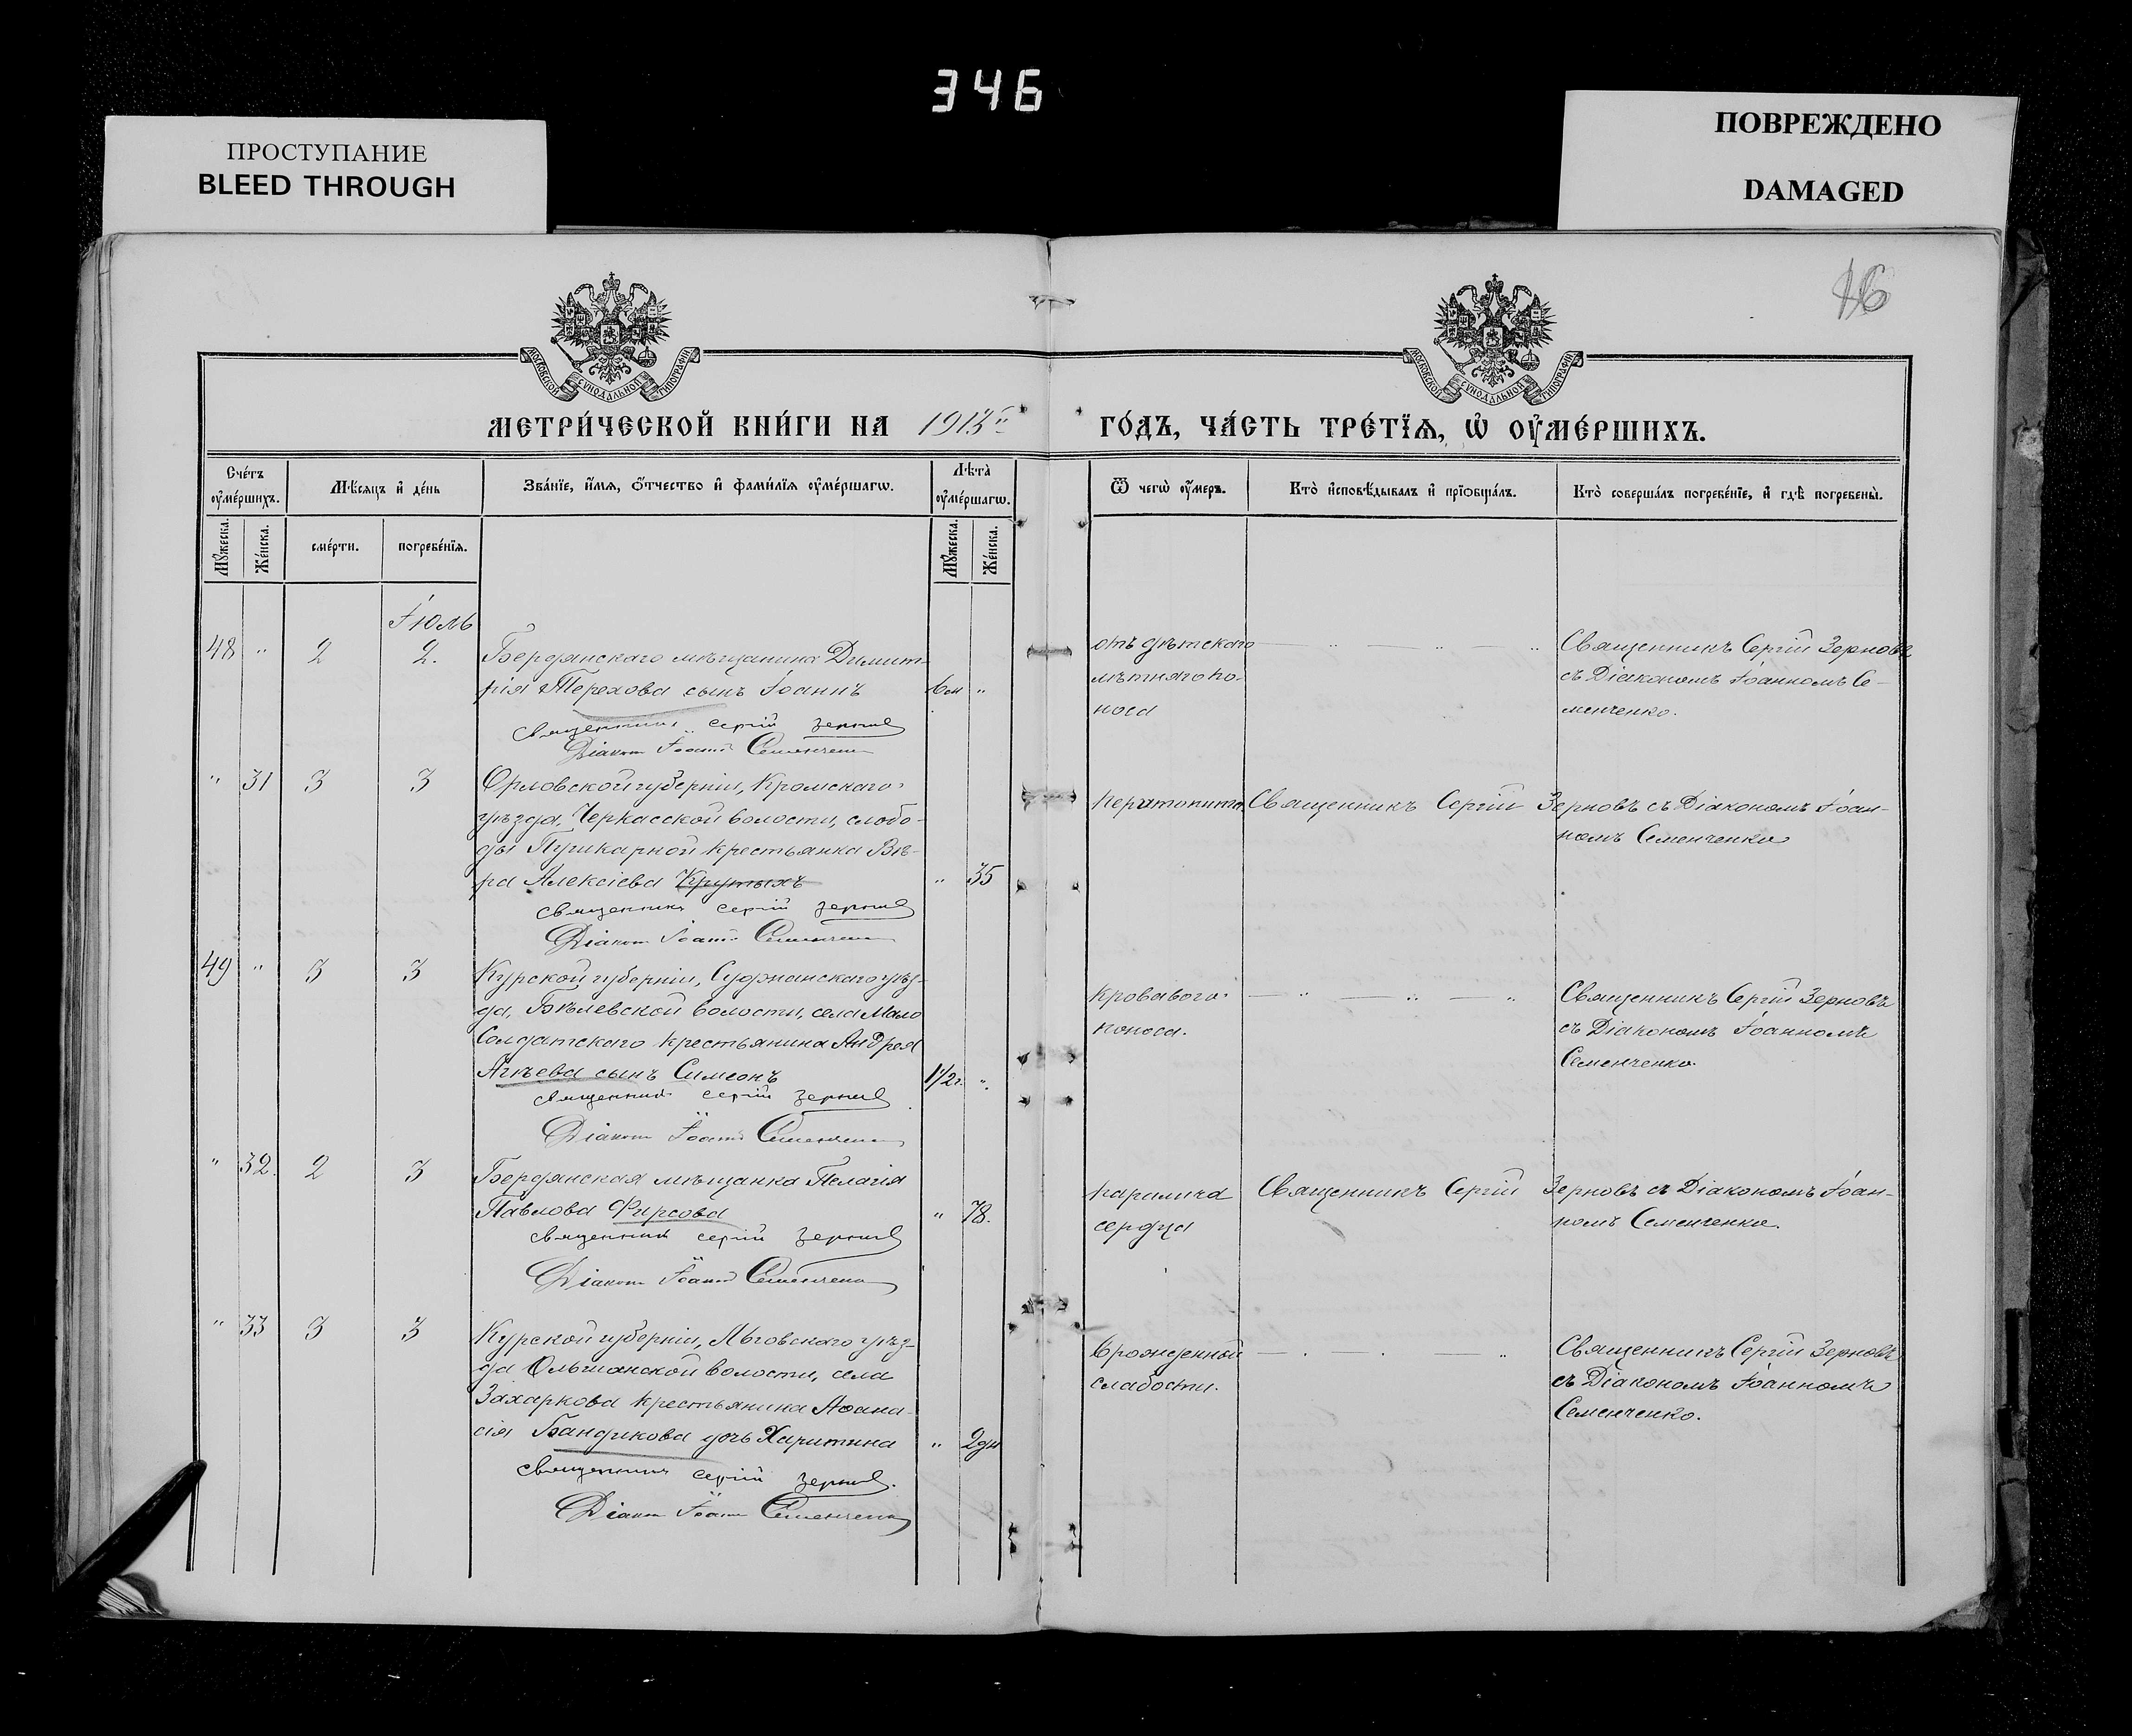 346
ПРОСТУПАНИЕ
BLEED THROUGH
ПОВРЕЖДЕНО
DAMAGED
16
МОСКОВСКОЙ СУНОДАЛЬНОЙ ТИПОГРАФІИ
МОСКОВСКОЙ СУНОДАЛЬНОЙ ТИПОГРАФІИ
МЕТРИ́ЧЕСКОЙ КНИ́ГИ НА 1913й
ГО́ДЪ, ЧА́СТЬ ТРЕ́ТЇѦ, Ѡ҆ ОУ҆МЕ́РШИХЪ.
Сче́тъ оу҆ме́ршихъ.
Мѣ́сѧцъ и҆ де́нь
Зва́нїе, и҆́мѧ, ѻ҆́тчество и҆ фами́лїѧ оу҆ме́ршагѡ.
Лѣ́та̀ оу҆ме́ршагѡ.
Ѿ чегѡ̀ оу҆́меръ.
Кто̀ и҆сповѣ́дывалъ и҆ прїѻбща́лъ.
Кто̀ соверша́лъ погребе́нїе, и҆ гдѣ̀ погребены̀.
Мꙋ́жеска.
Же́нска.
сме́рти.
погребе́нїѧ.
Мꙋ́жеска.
Же́нска.
Іюль
48 " 2 2. Бердянскаго мѣщанина Димит-
рія Терехова сынъ Іоаннъ 6м "
Священникъ Сергій Зерновъ
Діаконъ Іоаннъ Семенченко
отъ дѣтскаго
лѣтняго по-
носа
Священникъ Сергій Зерновъ
съ Діакономъ Іоанномъ Се-
менченко.
" 31 3 3 Орловской губерніи, Кромскаго
уѣзда, Черкасской волости, слобо-
ды Пушкарной крестьянка Вѣ-
ра Алексіева Крутыхъ " 35
Священникъ Сергій Зерновъ
Діаконъ Іоаннъ Семенченко
Перитонита Священникъ Сергій Зерновъ съ Діакономъ Іоан-
номъ Семенченко
49 " 3 3 Курской губерніи, Суджанскаго уѣз-
да, Бѣлевской волости, села Мало
Солдатскаго крестьянина Андрея
Агѣева сынъ Симеонъ 1 1/2 г. "
Священникъ Сергій Зерновъ
Діаконъ Іоаннъ Семенченко
Кроваваго
поноса.
Священникъ Сергій Зерновъ
съ Діакономъ Іоанномъ
Семенченко.
" 32. 2 3 Бердянская мѣщанка Пелагія
Павлова Фирсова " 78.
Священникъ Сергій Зерновъ
Діаконъ Іоаннъ Семенченко
паралича
сердца
Священникъ Сергій Зерновъ съ Діакономъ Іоан-
номъ Семенченко.
" 33 3 3 Курской губерніи, Льговскаго уѣз-
да Ольшанской волости, села
Захаркова крестьянина Аѳана-
сія Бандикова дочь Харитина " 2 дн
Священникъ Сергій Зерновъ.
Діаконъ Іоаннъ Семенченко
врожденной
слабости.
Священникъ Сергій Зерновъ
съ Діакономъ Іоанномъ
Семенченко.